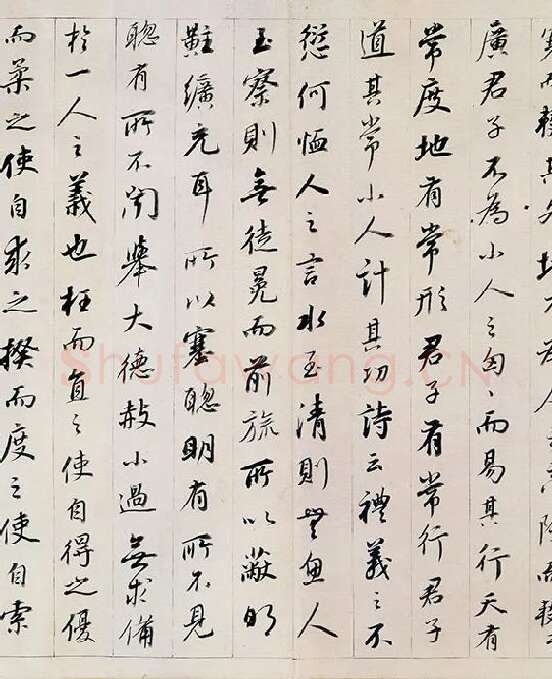 廣君子不為小人之匈〻而易其行天有
常度地有常形君子有常行君子
道其常小人計其功詩云禮義之不
愆何恤人之言水至清則無魚人
至察則無徒冕而前旒所以蔽明
黈纊充耳所以塞聰明有所不見
聰有所不聞舉大德赦小過無求備
於一人之義也枉而直之使自得之優
而柔之使自求之揆而度之使自索
Shufawang.CN